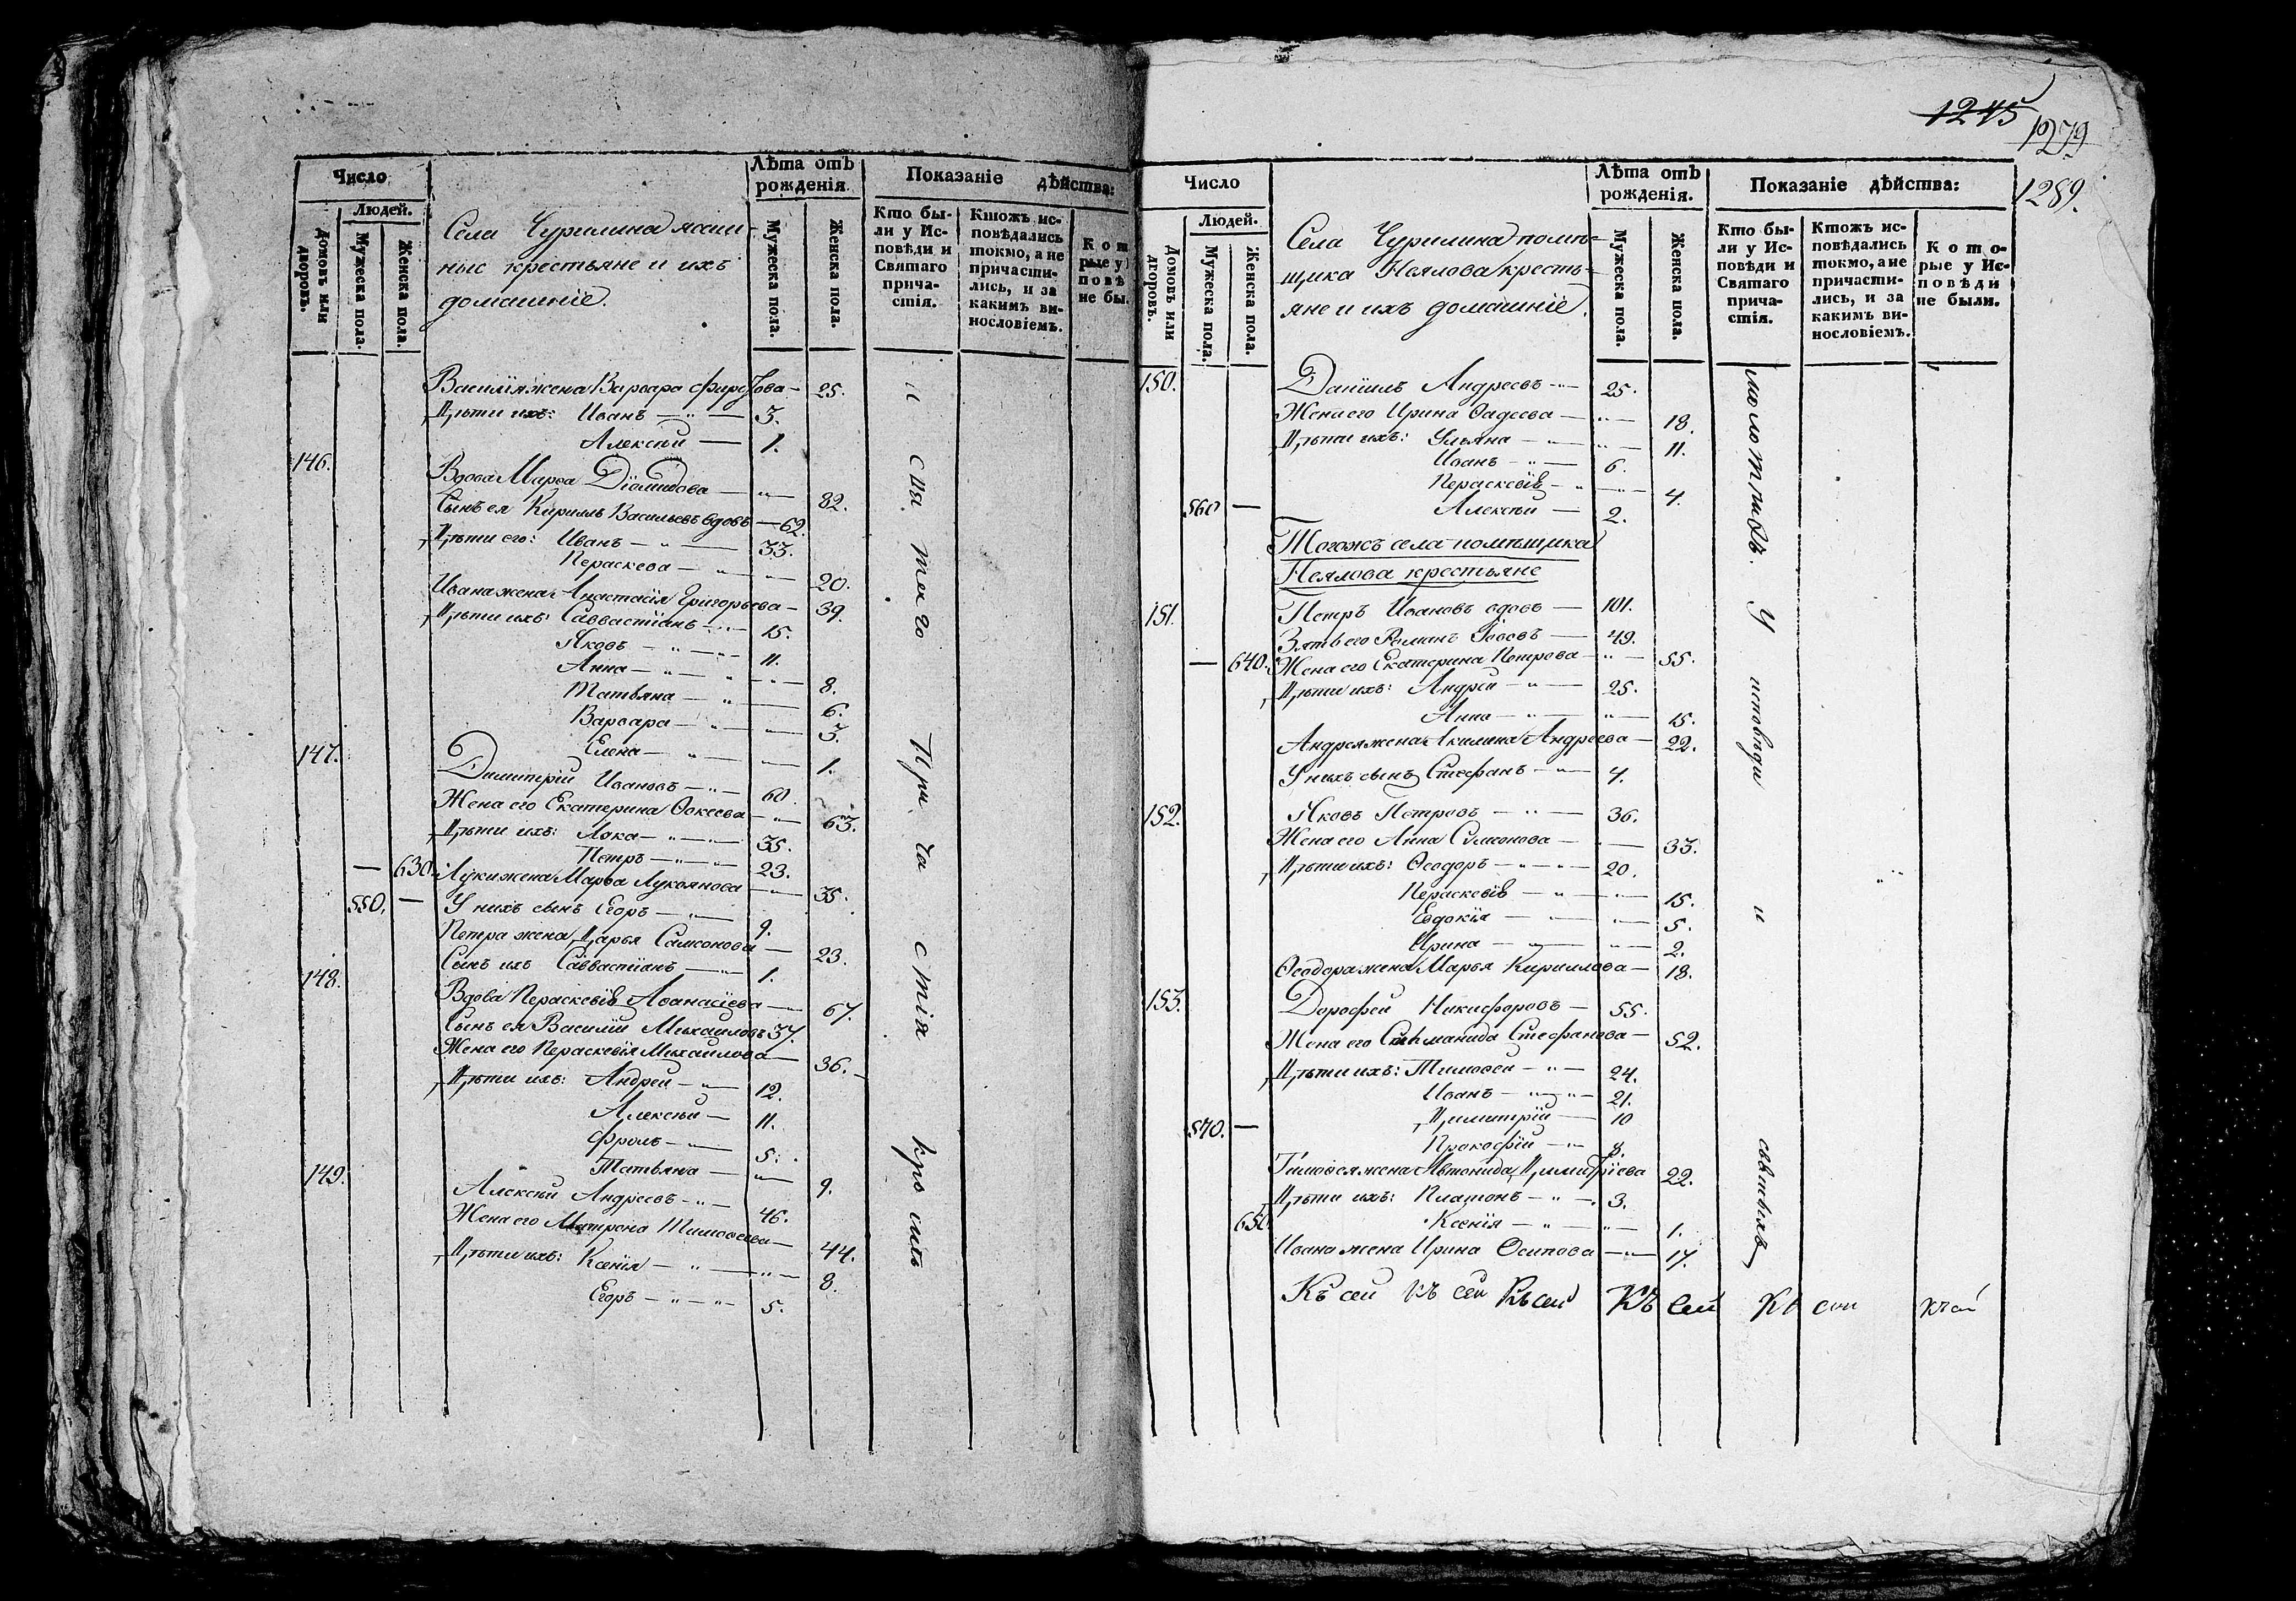 Число
Людей.
Домовъ или дворовъ.
Мужеска пола.
Женска пола.
Села Чурилина ясаш-
ные крестьяне и ихъ
домашніе.
Лѣта отъ рожденія.
Мужеска пола.
Женска пола.
Показаніе дѣйства:
Кто бы-
ли у Ис-
повѣди и
Святаго
прича-
стія.
Ктожъ ис-
повѣдались
токмо, а не
причасти-
лись, и за
какимъ ви-
нословіемъ.
К о т
рые у
п о в ѣ
не бы.
Василія жена Варвара 25.
Дѣти ихъ: Иванъ 3.
Алексѣй 1.
146.
Вдова Марѳа Діомидова 82.
Сынъ ея Кириллъ Васильевъ вдовъ 62.
Дѣти его: Иванъ 33.
Параскева 20.
Ивана жена Анастасія Григорьева 39.
Дѣти ихъ: Саввастіанъ 15.
Яковъ 11.
Анна 8.
Татьяна 6.
Варвара 3.
Елена 1.
147.
Димитрій Ивановъ 60.
Жена его Екатерина 63.
Дѣти ихъ: Лука 35.
Петръ 23.
— 630. Луки жена Марѳа Лукоянова 35.
550. — У нихъ сынъ Егоръ 9.
Петра жена Дарья Самсонова 23.
Сынъ ихъ Саввастіанъ 1.
148.
Вдова Параскевія Аѳанасіева 67.
Сынъ ея Василій Михаиловъ 37.
Жена его Параскевія Михаилова 36.
Дѣти ихъ: Андрей 12.
Алексѣй 11.
Фролъ 5.
Татьяна 9.
149.
Алексѣй Андреевъ 46.
Жена его Матрона Тимоѳеева 44.
Дѣти ихъ: Ксенія 8.
Егоръ 5.
и свя таго При ча стія кро мѣ
1245
1279
1289.
Число
Людей.
Домовъ или дворовъ.
Мужеска пола.
Женска пола.
Села Чурилина помѣ-
щика Неялова кресть-
яне и ихъ домашніе.
Лѣта отъ рожденія.
Мужеска пола.
Женска пола.
Показаніе дѣйства:
Кто бы-
ли у Ис-
повѣди и
Святаго
прича-
стія.
Ктожъ ис-
повѣдались
токмо, а не
причасти-
лись, и за
какимъ ви-
нословіемъ.
К о т о-
рые у Ис-
п о в ѣ д и
не были.
150. Даніилъ Андреевъ 25.
Жена его Ирина Ѳадеева 18.
Дѣти ихъ: Ульяна 11.
Иванъ 6.
Параскевія 4.
560 — Алексѣй 2.
Тогожъ села помѣщика
Неялова крестьяне
151. Петръ Ивановъ вдовъ 101.
Зять его Романъ Іововъ 49.
— 640. Жена его Екатерина Петрова 55.
Дѣти ихъ: Андрей 25.
Анна 15.
Андрея жена Акилина Андреева 22.
У нихъ сынъ Стефанъ 4.
152. Яковъ Петровъ 36.
Жена его Анна Симонова 33.
Дѣти ихъ: Ѳеодоръ 20.
Параскевія 15.
Евдокія 5.
Ирина 2.
Ѳеодора жена Марья Кириллова 18.
153. Дорофей Никифоровъ 55.
Жена его Стефанова 52.
Дѣти ихъ: Тимоѳей 24.
Иванъ 21.
570. — Димитрій 10
Прокофій 8.
Тимоѳея жена Димитріева 22.
Дѣти ихъ: Платонъ 3.
650 Ксенія 1.
Ивана жена Ирина Осипова 17.
Къ сей къ сей Къ сей Къ сей Къ сей
У исповѣди и